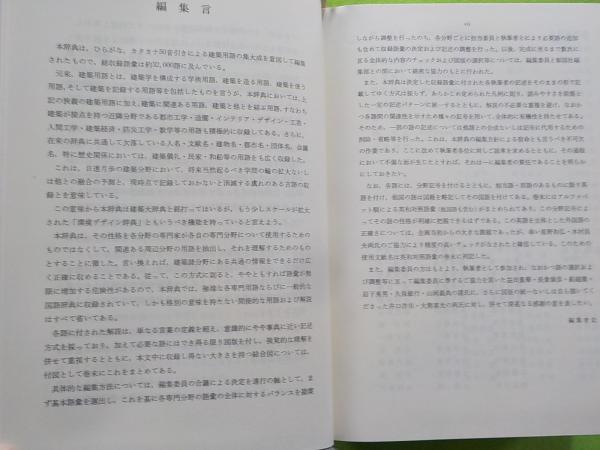 編集言
本辞典は、ひらがな、カタカナ50音引きによる建築用語の集大成を意図して編集
されたもので、総収録語彙は約32,000語に及んでいる。
元来、建築用語とは、建築学を構成する学術用語、建築を造る用語、建築を使う
用語、そして建築を記録する用語等を包括したものを言うが、本辞典においては、上
記の狭義の建築用語に加え、建築に関連ある用語、建築と他とを結ぶ用語、すなわち
建築が接点を持つ近隣分野である都市工学・造園・インテリア・デザイン・工芸・
人間工学・建築経済・防災工学・数学等の用語も積極的に収録してある。さらに、
在来の辞典に共通して欠落している人名・文献名・建物名・都市名・団体名、
名、特に歴史関係においては、建築儀礼・民家・和船等の用語をも広く収録した。
これは、日進月歩の建築分野において、将来当然起るべき学問の輪の拡大ないし
は他との融合の予測と、現時点で記録しておかないと消滅する虞れのある古語の収
録とを意味している。
この意味から本辞典は建築大辞典と銘打ってはいるが、もう少しスケールが拡大
された「環境デザイン辞典」ともいうべき機能を持っていると言えよう。
本辞典は、その性格を各分野の専門家が各自の専門分野について使用するための
ものではなくして、関連ある周辺分野の用語を抽出し、それを理解するためのもの
とすることに徹した。言い換えれば、建築諸分野にある共通の情報をできるだけ広
く正確に収めることである。従って、この方式に因ると、ややともすれば語彙が無
限に増加する危険性があるので、本辞典では、極端な各専門用語ならびに一般的な
国語辞典に収録されていて、しかも格別の意味を持たない間接的な用語および解説
はすべて省いてある。
各語に付された解説は、単なる言葉の定義を超え、意識的にやや事典に近い記述
方式を採っており、加えて必要な語にはできる限り図版を付し、視覚的な理解を
併せて重視するとともに、本文中に収録し得ない大きさを持つ総合図については、
付図として巻末にこれをまとめてある。
具体的な編集方法については、編集委員の合議による決定を進行の軸として、ま
ず基本語彙を選出し、これを基に各専門分野の語彙の全体に対するバランスを按案
しながら調整を行ったのち、各分野ごとに担当委員と執筆者とにより必要語の追加
も含めて収録語彙の決定および記述の調整を行った。以後、完成に至るまで数次に
亘る全体的な内容のチェックおよび図版の選択等については、編集委員と彰国社編
集部との間において緻密な協力のもとに行われた。
また、本辞典は決定した収録語彙に対し、担当された各執筆者の記述をそのままの形で記
載してゆく方式は採らず、あらかじめ定められた凡例に則り、読みやすさを前提と
した一定の記述パターンに統一するとともに、解説の不必要な重複を避け、なおか
つ各語間の関連性を示すため種々の記号を用いて、全体的に有機性を持たせてある。
そのため、一部の語の記述については他語との合成ないしは記号に代用するための
削除・省略等を行った。これは、本辞典の編集方針による宿命とも言うべき不可欠
の作業であり、ここに改めて執筆者各位に対して諒承を求めるとともに、その過程
において不備な点が生じたとすれば、それは一に編集者の責任であることを明らか
にしておきたい。
なお、各語には、分野記号を付けるとともに、相当語・原語のあるものに限り英
語を付け、他国の語には国籍を略記してその国語を付した。巻末にはアルファベ
ット順による英和対照語彙（他国語も含む）がまとめられてあり、この分野記号によ
ってその語の性格が明確に把握できるはずである。この英語を主体とした外国語の
正確さについては、企画当初からの大きな課題であったが、
のご協力により精度の高いチェックがなされたと確信している。このための
使用文献名は英和対照語彙の巻末に列記した。
また、編集委員の方はもとより、執筆者として参加され、なおかつ語の選択およ
び調整等に亘って編集者に準ずるご協力を頂いた
の諸氏に、さらに図版の統一ないしは
の両氏に対し、併せて深甚なる感謝の意を表したい。
編集者言